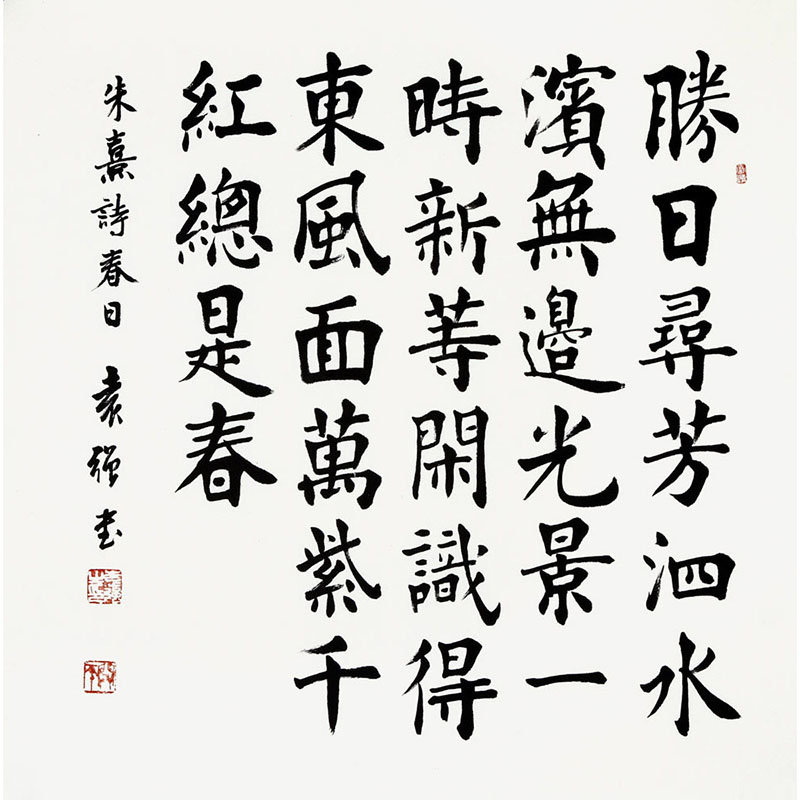 勝日尋芳泗水
濱無邊光景一
時新等閑識得
東風面萬紫千
紅總是春
朱熹詩春日 袁强书